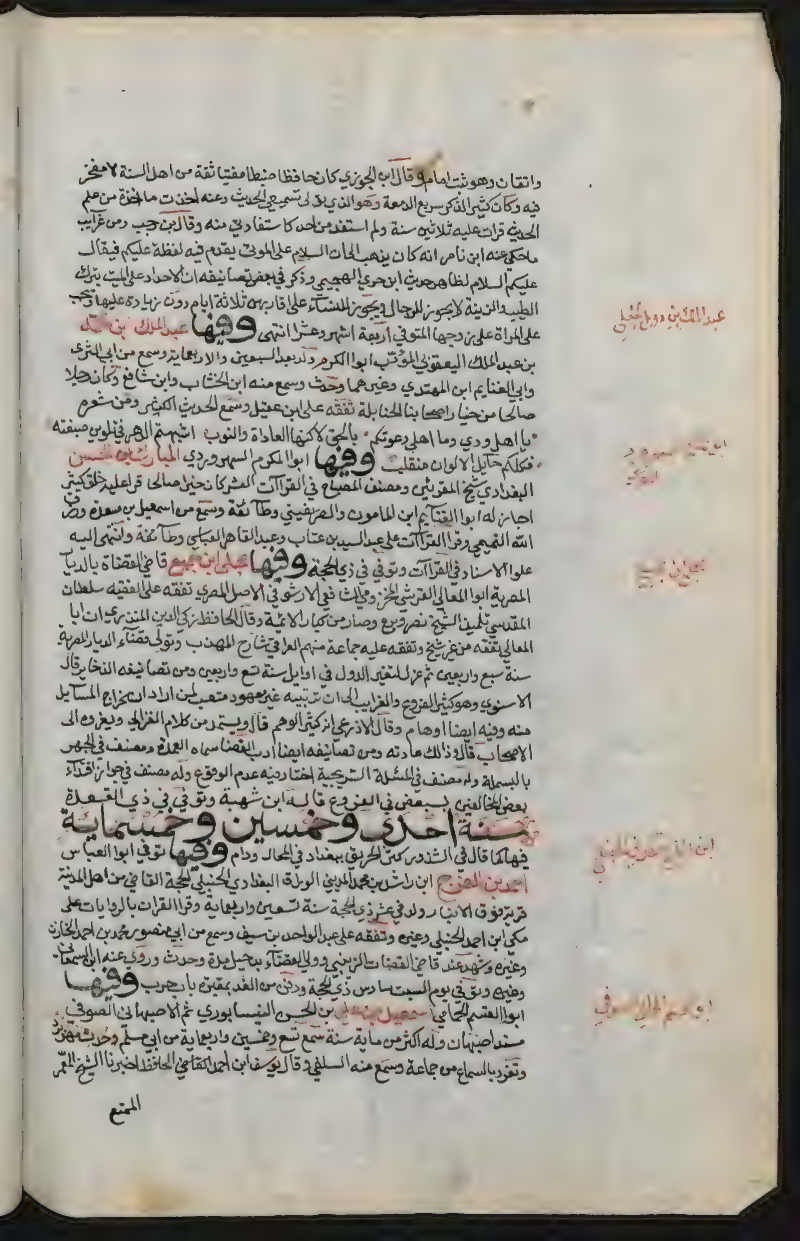 واتقان وهو ثبت امام وقال ابن الجوزي كان حافظا ضبطا مفتيا ثقة من اهل السنة لا مغمز
فيه وكان كثير الذكر سريع الدمعة وهو الذي تولى تسميعي الحديث وعنه اخذت ما اخذت من علم
الحديث قرات عليه ثلاثين سنة ولم استفد من احد كاستفادتي منه وقال ابن رجب ومن غرايب
ما حكي عنه ابن ناصر انه كان يذهب الى ان السلام على الموتى يقدم فيه لفظة عليكم فيقال
عليكم السلام لظاهر حديث ابي جري الهجيمي وذكر في بعض تصانيفه ان الاحداد على الميت بترك
الطيب والزينة لا يجوز للرجال ويجوز للنساء على اقاربهن ثلاثة ايام دون زيادة عليها ويجب
على المراة على زوجها المتوفي اربعة اشهر وعشرا انتهى وفيها عبد الملك بن محمد
بن عبد الملك اليعقوبي المؤدب ابوا الكرم ولد بعد السبعين والاربعماية وسمع من ابي النرسي
وابي الغنايم ابن المهتدي وغيرهما وحدث وسمع منه ابن الخشاب وابن شافع وكان رجلا
صالحا من خيار اصحابنا الحنابلة تفقه على ابن عقيل وسمع الحديث الكثير ومن شعره
يا اهل ودي وما اهلا دعوتكم بالحق لاكنها العاداة والنوب اشبهتم الدهر في تلوين صبغته
فكلكم حايل الالوان منقلب وفيها ابوا المكرم السهروردي المبارك بن الحسن
البغدادي شيخ المقرئين ومصنف المصباح في القراآت العشر كان خيرا صالحا قرا عليه خلق كثير
اجاز له ابوا الغنايم ابن المامون والصريفيني وطآئفة وسمع من اسمعيل بن مسعدة ورزق
الله التميمي وقرا القراآت على عبد السيد بن عتاب وعبد القاهر العباسي وطآئفة وانتهى اليه
علو الاسناد في القراآت وتوفي في ذي الحجة وفيها مجلي ابن جميع قاضي القضاة بالديار
المصرية ابوا المعالي القرشي المخزومي الشافعي الارسوفي الاصل المصري تفقه على الفقيه سلطان
المقدسي تلميذ الشيخ نصر وبرع وصار من كبار الائمة وقال الحافظ زكي الدين المنذري ان ابا
المعالي تفقه من غير شيخ وتفقه عليه جماعة منهم العراقي شارح المهذب وتولى قضآء الديار المصرية
سنة سبع واربعين ثم عزل لتغير الدول في اوايل سنة تسع واربعين ومن تصانيفه الذخاير قال
الاسنوي وهو كثير الفروع والغرايب الا ان ترتيبه غير معهود متعب لمن اراد استخراج المسايل
منه وفيه ايضا اوهام وقال الاذرعي انه كثير الوهم قال ويستمد من كلام الغزالي ويعزوه الى
الاصحاب قال وذلك عادته ومن تصانيفه ايضا ادب القضا سماه العمدة ومصنف في الجهر
بالبسملة وله مصنف في المسئلة السريجية اختار فيه عدم الوقوع وله مصنف في جواز اقتداء
بعض المخالفين ببعض في الفروع قاله ابن شهبة وتوفي في ذي القعدة
سنة احدى وخمسين وخمسماية
فيها كما قال في الشذور كثر الحريق ببغداد في المحال ودام وفيها توفي ابوا العباس
احمد بن الفرج ابن راشد بن محمد المدني الوراق البغدادي الحنبلي الحجة القاضي من اهل المدينة
قرية فوق الانبار ولد في عشر ذي الحجة سنة تسعين واربعماية وقرا القران بالروايات على
مكي ابن احمد الحنبلي وغيره وتفقه على عبد الواحد بن سيف وسمع من ابي منصور محمد بن احمد الخازن
وغيره وشهد عند قاضي القضات الزينبي وولي القضآء بدجيل مدة وحدث وروى عنه ابن السمعاني
وغيره وتوفي يوم السبت سادس ذي الحجة ودفن من الغد بمقبرة باب حرب وفيها
ابوا القسم الحمامي اسمعيل بن علي بن الحسين النيسابوري ثم الاصبهاني الصوفي
مسند اصبهان وله اكثر من ماية سنة سمع تسع وخمسين واربعماية من ابي مسلم وحدث بهريرد
وتفرد بالسماع من جماعة وسمع منه السلفي وقال يوسف ابن احمد القاضي الحافظ اخبرنا الشيخ المعمر
الممتع
ابن الفرج الحنبلي
ابو القسم الحمامي الصوفي